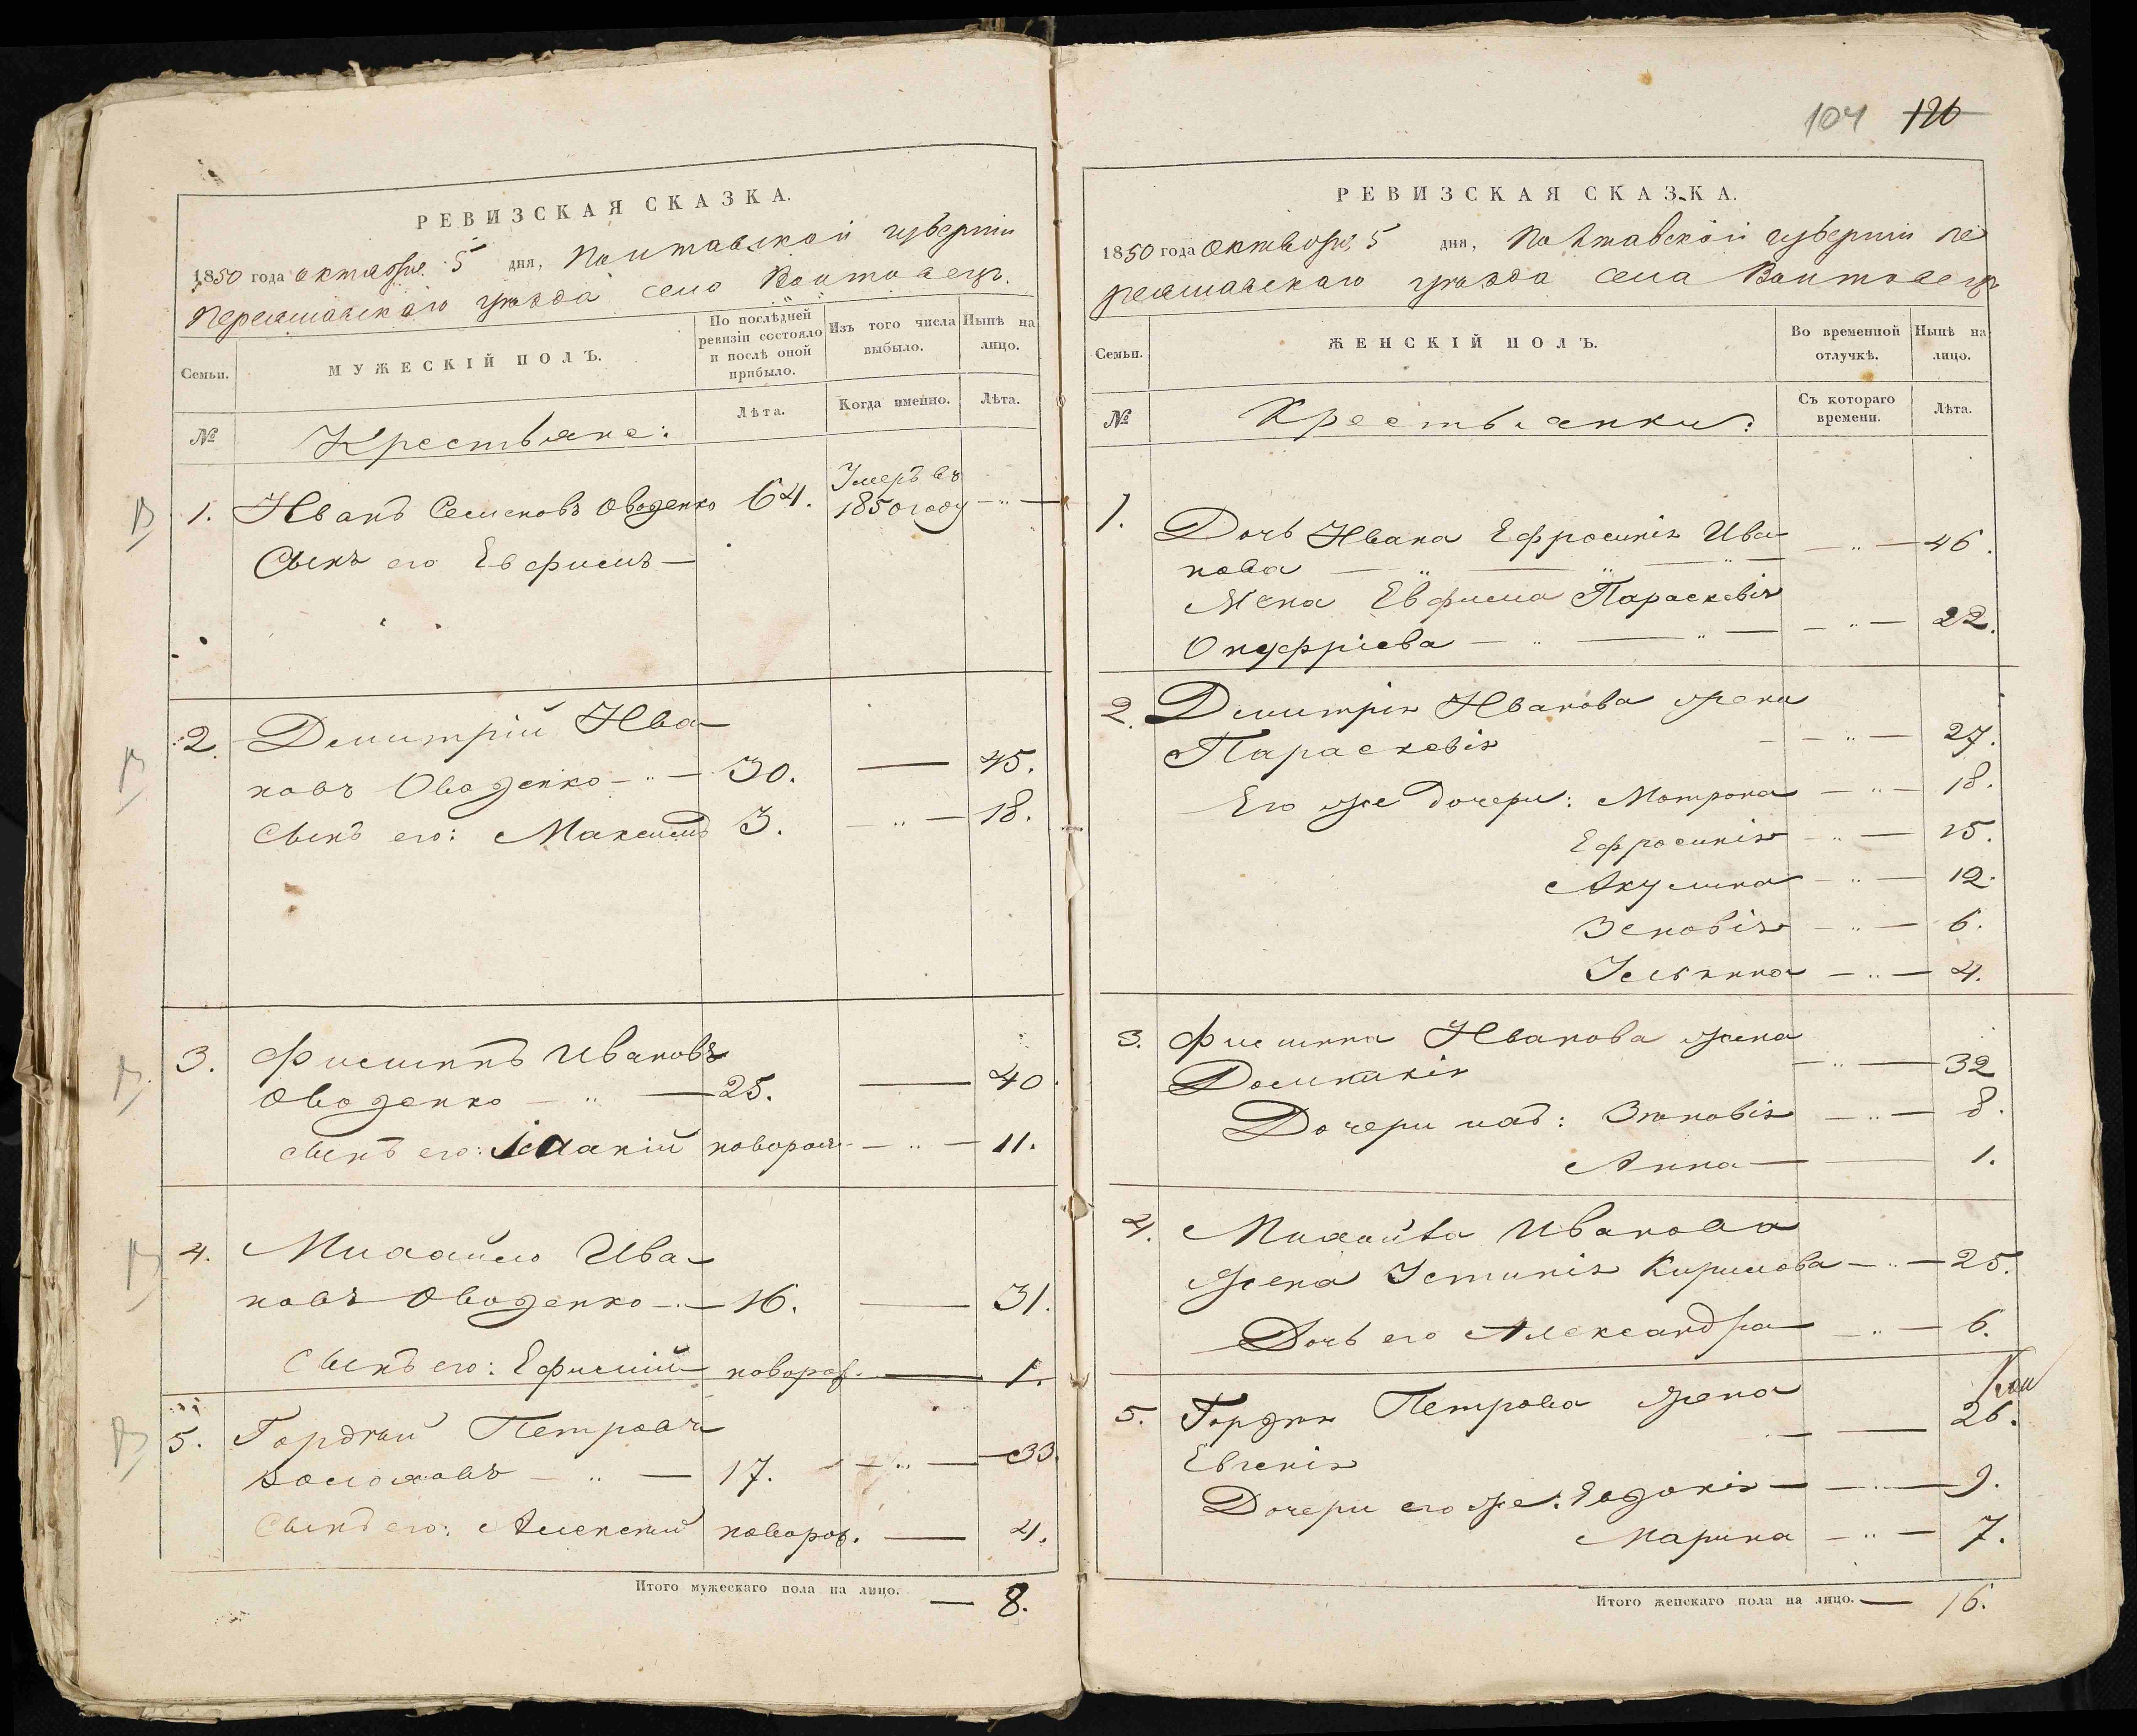 РЕВИЗСКАЯ СКАЗКА.
1850 года октября 5 дня, Полтавской губерніи
Переяславскаго уѣзда села Войтовецъ
Семьи.
МУЖЕСКІЙ ПОЛЪ.
По послѣдней ревизіи состояло и послѣ оной прибыло.
Изъ того числа выбыло.
Нынѣ на лицо.
№
Крестьяне:
Лѣта.
Когда именно.
Лѣта.
1. Иванъ Семеновъ Оводенко 64. Умеръ въ 1850 году — „ —
Сынъ его Евфимъ —
2. Димитрій Ива-
новъ Оводенко — „ — 30. — 45.
Сынъ его: Максимъ 3. — „ — 18.
3. Филиппъ Ивановъ
Оводенко — „ — 25. — 40.
Сынъ его: Іоакій новорож. — „ — 11.
4. Михайло Ива-
новъ Оводенко — „ — 16. — 31.
Сынъ его: Ефимій новорож. — 1.
5. Гордѣй Петровъ
— „ — 17. — „ — 33.
Сынъ его: Алексѣй новорож. — 4.
Итого мужескаго пола на лицо. — 8.
104 126
РЕВИЗСКАЯ СКАЗКА.
1850 года октября 5 дня, Полтавской губерніи Пе
реяславскаго уѣзда села Войтовецъ
Семьи.
ЖЕНСКІЙ ПОЛЪ.
Во временной отлучкѣ.
Нынѣ на лицо.
№
Крестьянки:
Съ котораго времени.
Лѣта.
1. Дочь Ивана Ефросинія Ива-
нова — „ — „ — „ — — „ — 46.
Жена Евфима Параскевія
Онуфріева — „ — „ — — „ — 22.
2. Димитрія Иванова жена
Параскевія — — „ — 27.
Его же дочери: Матрона — „ — 18.
Ефросинія — „ — 15.
Акулина — „ — 12.
Зеновія — „ — 6.
Ульянна — „ — 4.
3. Филиппа Иванова жена
Домникія — „ — 32
Дочери его: Зиновія — „ — 8.
Анна — — 1.
4. Михайла Иванова
жена Устинія Кирилова — „ — 25.
Дочь его Александра — „ — 6.
5. Гордѣя Петрова жена
Евгенія — — 26.
Дочери его же: Евдокія — — „ — 9.
Марина — „ — 7.
Итого женскаго пола на лицо. — 16.